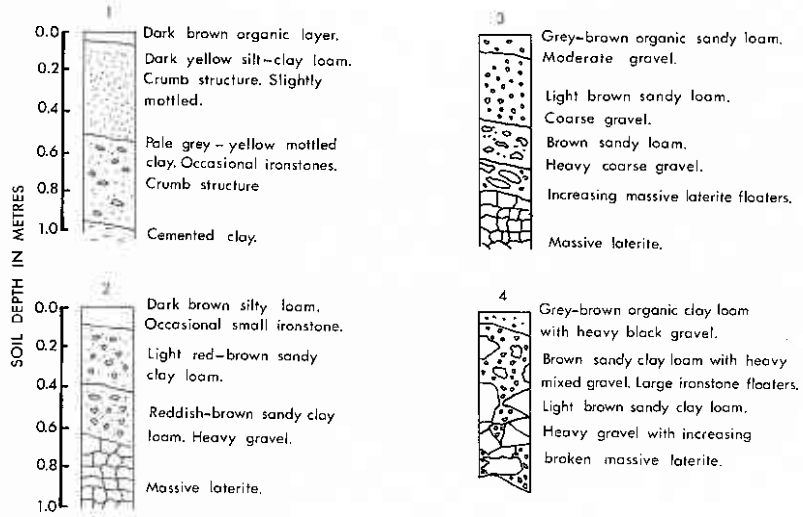 SOIL DEPTH IN METRES
1
0.0
0.2
0.4
0.6
0.8
1.0
Dark brown organic layer.
Dark yellow silt-clay loam.
Crumb structure. Slightly
mottled.
Pale grey - yellow mottled
clay. Occasional ironstones.
Crumb structure
Cemented clay.
2
0.0
0.2
0.4
0.6
0.8
1.0
Dark brown silty loam.
Occasional small ironstone.
Light red-brown sandy
clay loam.
Reddish-brown sandy clay
loam. Heavy gravel.
Massive laterite.
3
Grey-brown organic sandy loam.
Moderate gravel.
Light brown sandy loam.
Coarse gravel.
Brown sandy loam.
Heavy coarse gravel.
Increasing massive laterite floaters.
Massive laterite.
4
Grey-brown organic clay loam
with heavy black gravel.
Brown sandy clay loam with heavy
mixed gravel. Large ironstone floaters.
Light brown sandy clay loam.
Heavy gravel with increasing
broken massive laterite.